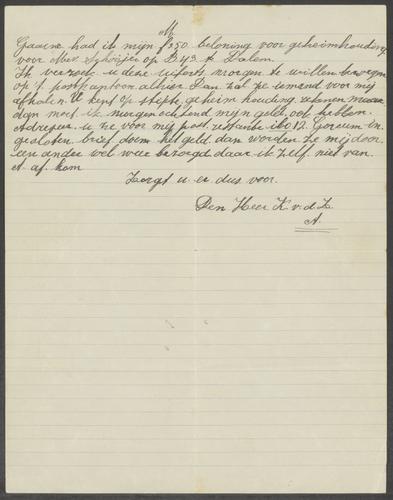 M
Gaarne had ik mijn f 350 beloning voor geheimhouding
voor Mev Schöijer op B 43 te Dalem.
Ik verzoek u deze uiterst morgen te willen bezorgen
op 't postkantoor alhier Dan zal ze iemand voor mij
afhalen U kent op stipte geheim houding rekenen maar
dan moet ik morgen ochtend mijn geld ook hebben.
Adreseer u ze voor mij post restante ibo 12 Gorcum in
gesloten brief doem het geld dan worden ze mij door
een ander wel weer bezorgd daar ik zelf niet van
A. af kom
Zorgt u er dus voor.
Den Heer K. v. d. Z.
A.